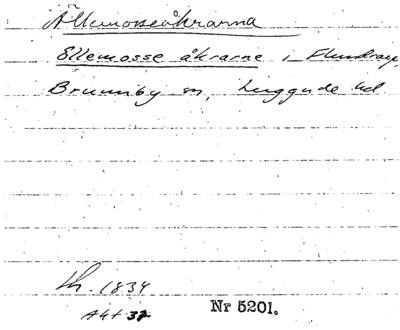 Ällemosseåkrarna
Ellemosse åkrarne i Flundrarp,
Brunnby sn, Luggude hd.
th. 1834
Akt 37 Nr 5201.